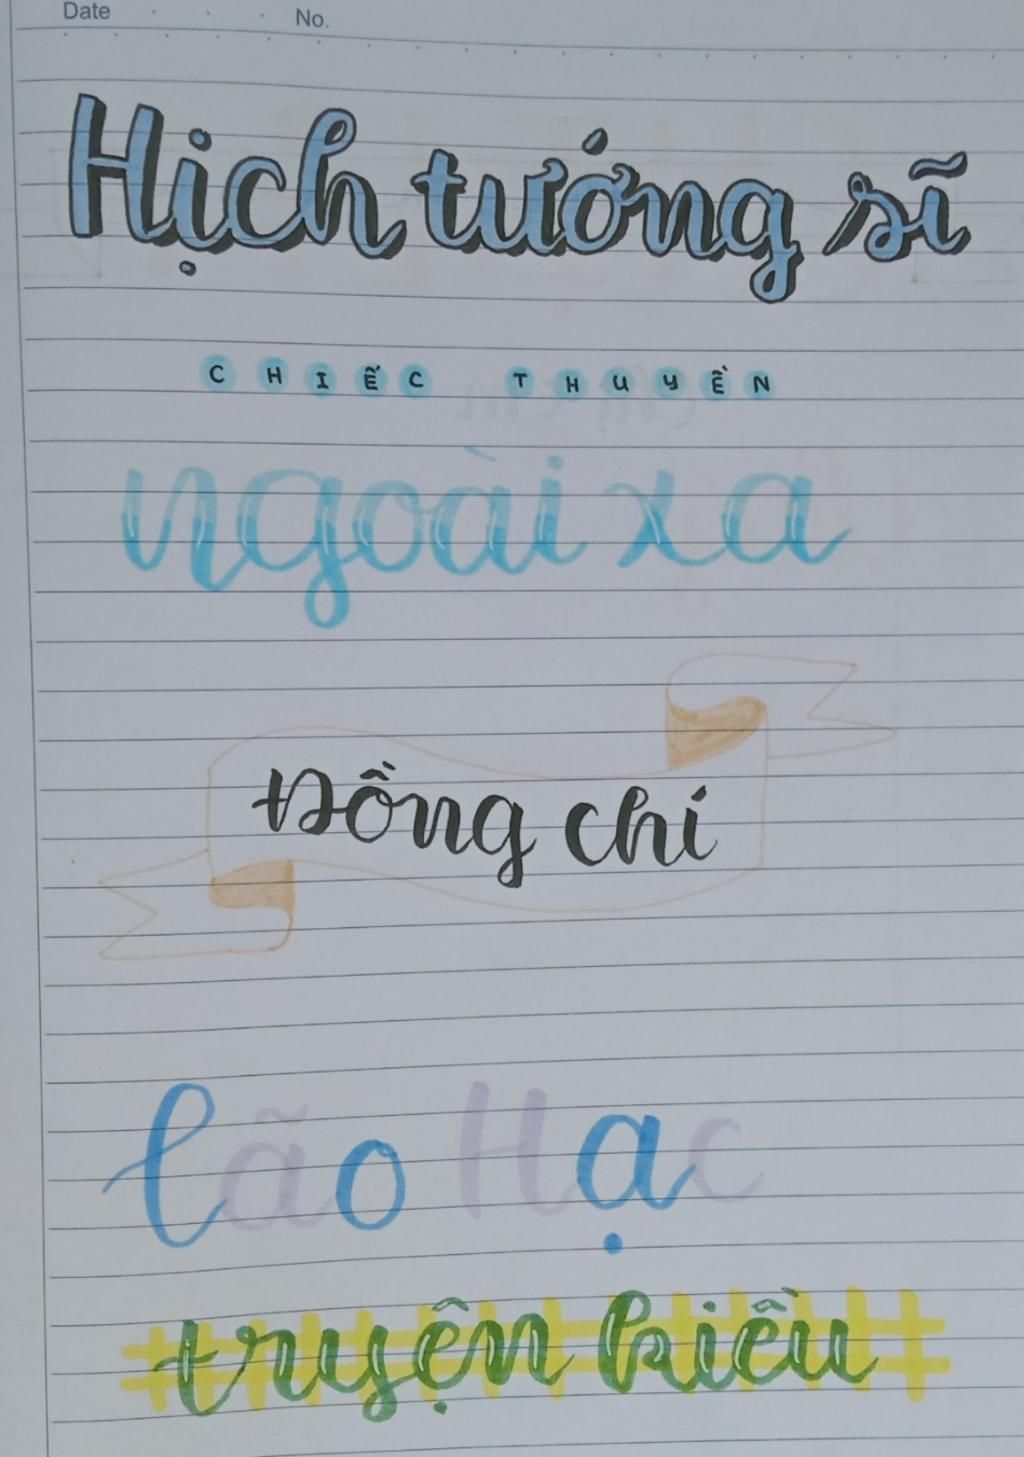 Date No.
Hịch tướng sĩ
CHIẾC THUYỀN
ngoài xa
Đồng chí
lão Hạc
truyện kiều